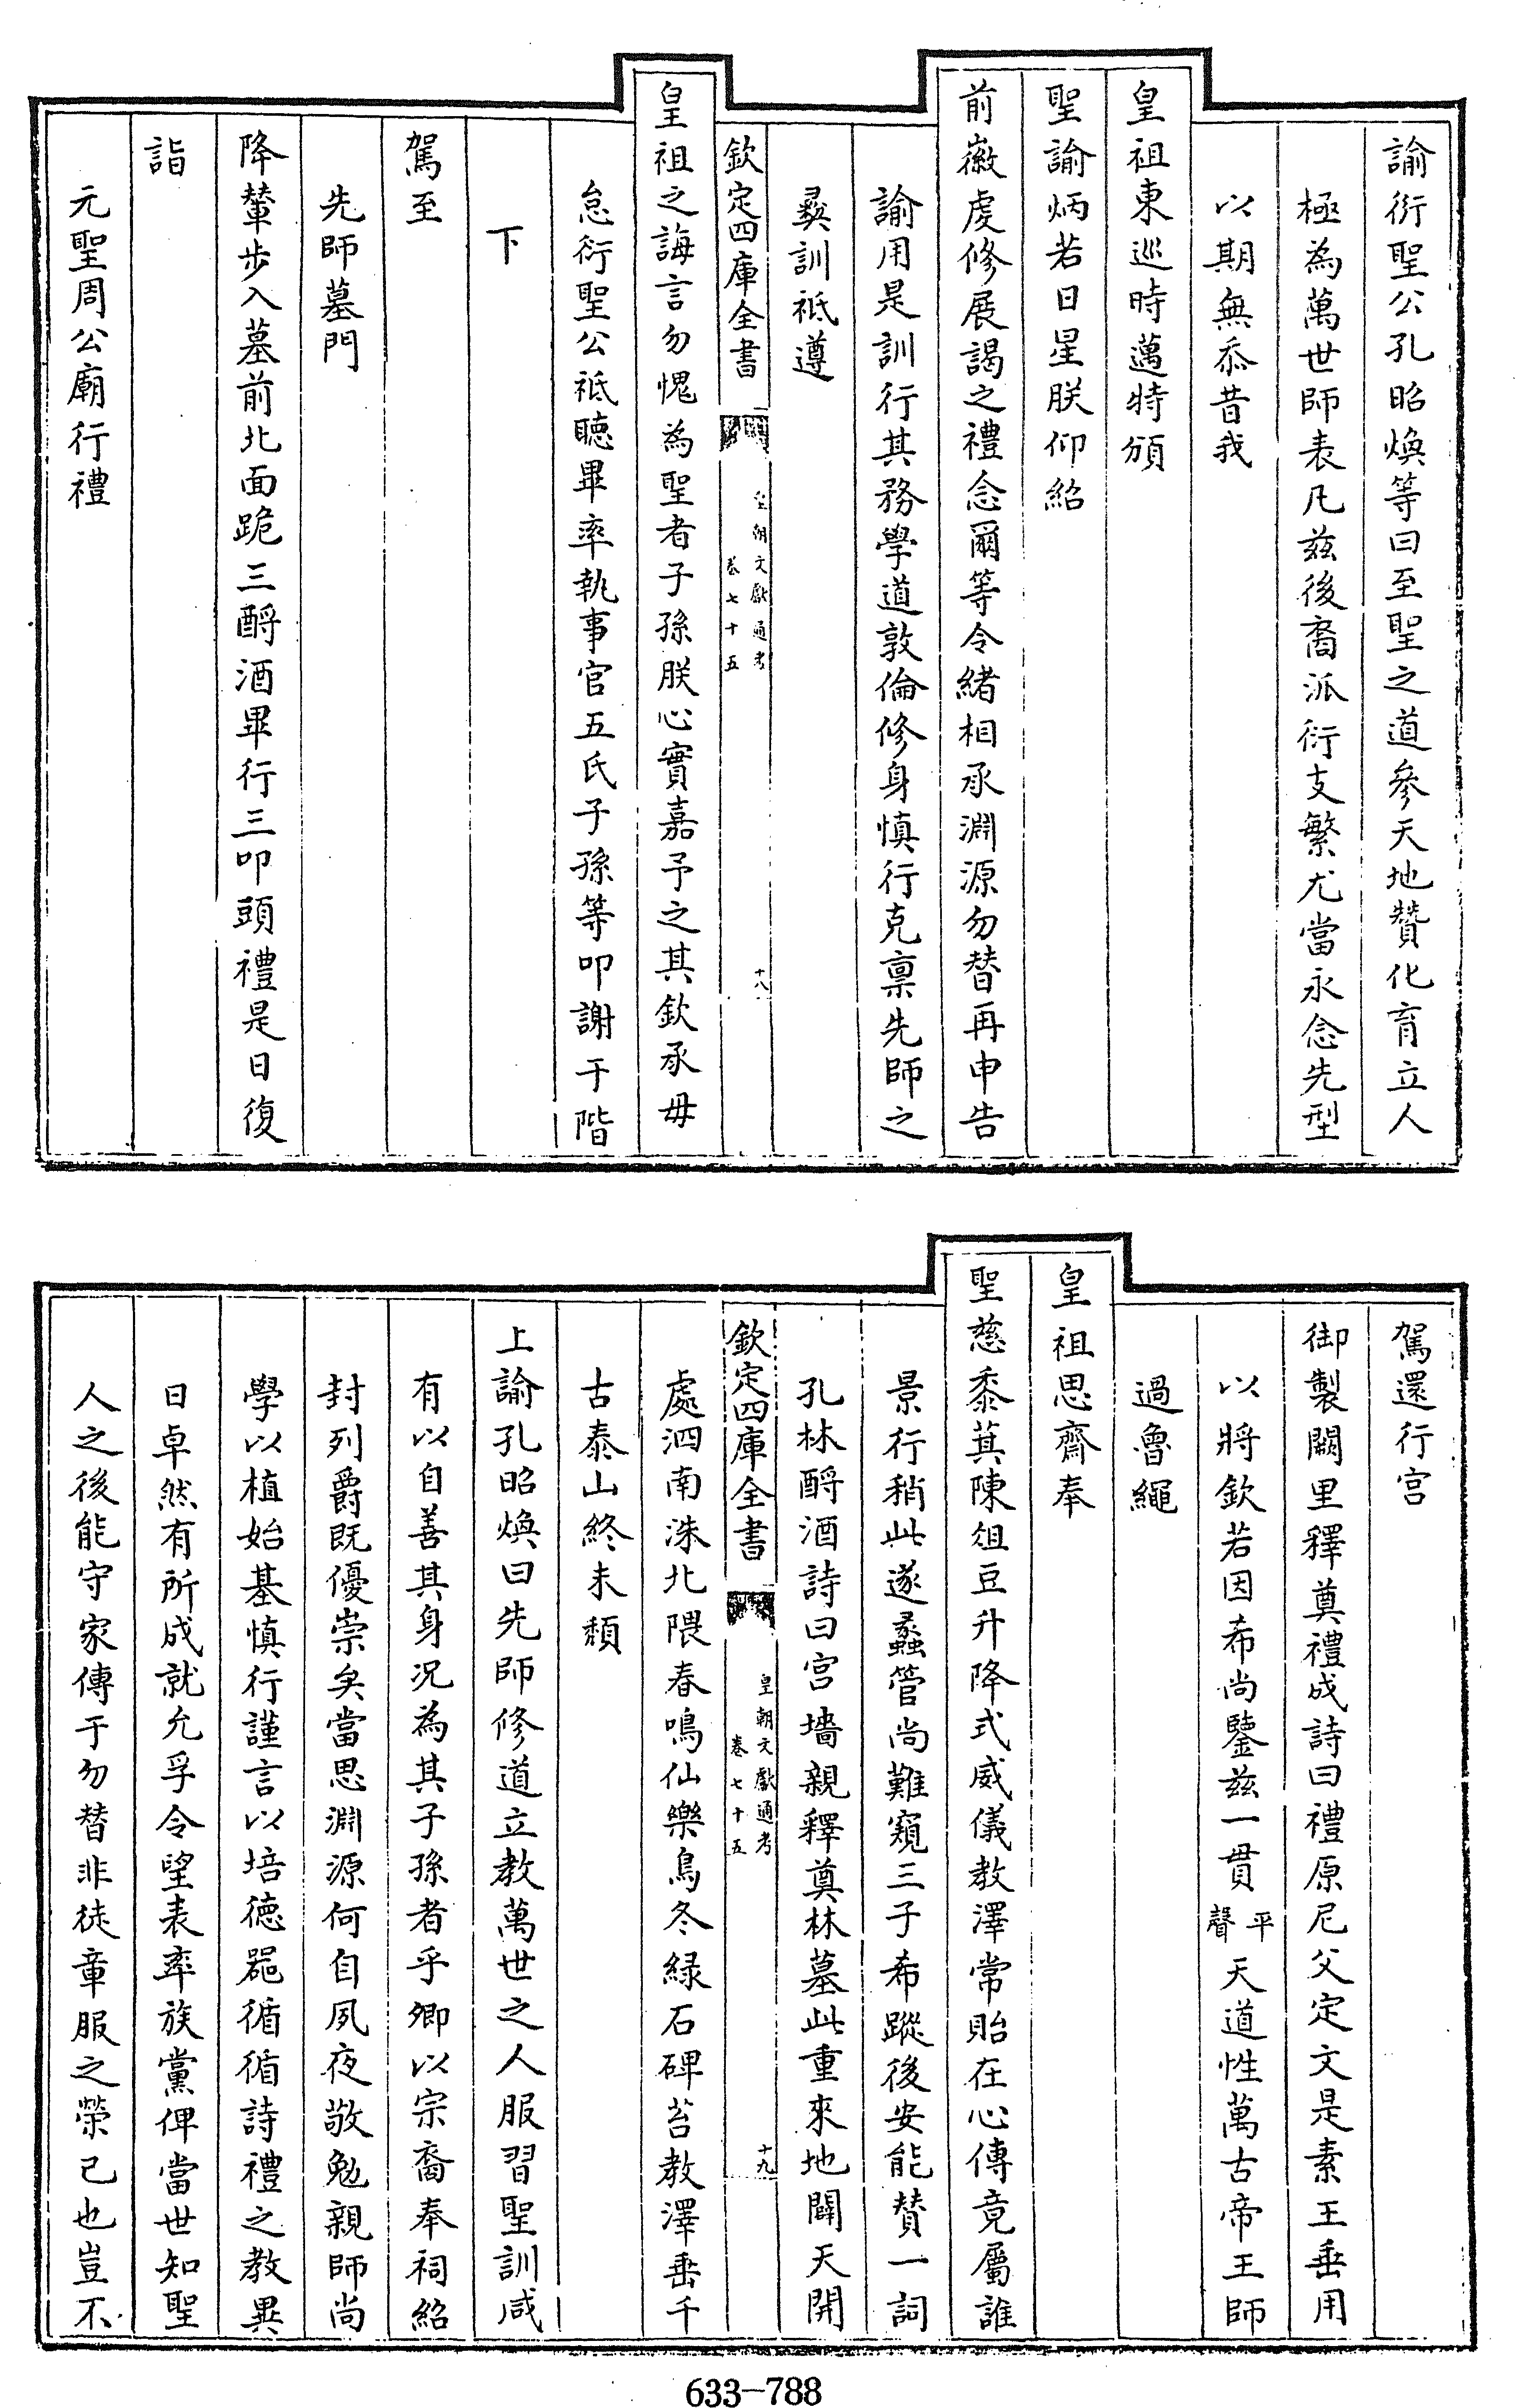 諭衍聖公孔昭煥等曰至聖之道參天地贊化育立人
極為萬世師表凡茲後裔派衍支繁尤當永念先型
以期無忝昔我
皇祖東巡時邁特頒
聖諭炳若日星朕仰紹
前徽虔修展謁之禮念爾等令緒相承淵源勿替再申告
諭用是訓行其務學道敦倫修身慎行克禀先師之
彝訓祗遵
欽定四庫全書
皇朝文獻通考
卷七十五
十八
皇祖之誨言勿愧為聖者子孫朕心實嘉予之其欽承毋
怠衍聖公祗聽畢率執事官五氏子孫等叩謝于階
下
駕至
先師墓門
降輦步入墓前北面跪三酹酒畢行三叩頭禮是日復
詣
元聖周公廟行禮
駕還行宮
御製闕里釋奠禮成詩曰禮原尼父定文是素王垂用
以將欽若因希尚鑒茲一貫平聲天道性萬古帝王師
過魯繩
皇祖思齊奉
聖慈黍萁陳俎豆升降式威儀教澤常貽在心傳竟屬誰
景行稍此遂蠡管尚難窺三子希蹤後安能贊一詞
孔林酹酒詩曰宮墻親釋奠林墓此重來地闢天開
欽定四庫全書
皇朝文獻通考
卷七十五
十九
處泗南洙北隈春鳴仙樂鳥冬綠石碑苔教澤垂千
古泰山終未頹
上諭孔昭煥曰先師修道立教萬世之人服習聖訓咸
有以自善其身況為其子孫者乎卿以宗裔奉祠紹
封列爵既優崇矣當思淵源何自夙夜敬勉親師尚
學以植始基慎行謹言以培德器循循詩禮之教異
日卓然有所成就允孚令望表率族黨俾當世知聖
人之後能守家傳于勿替非徒章服之榮已也豈不
633—788